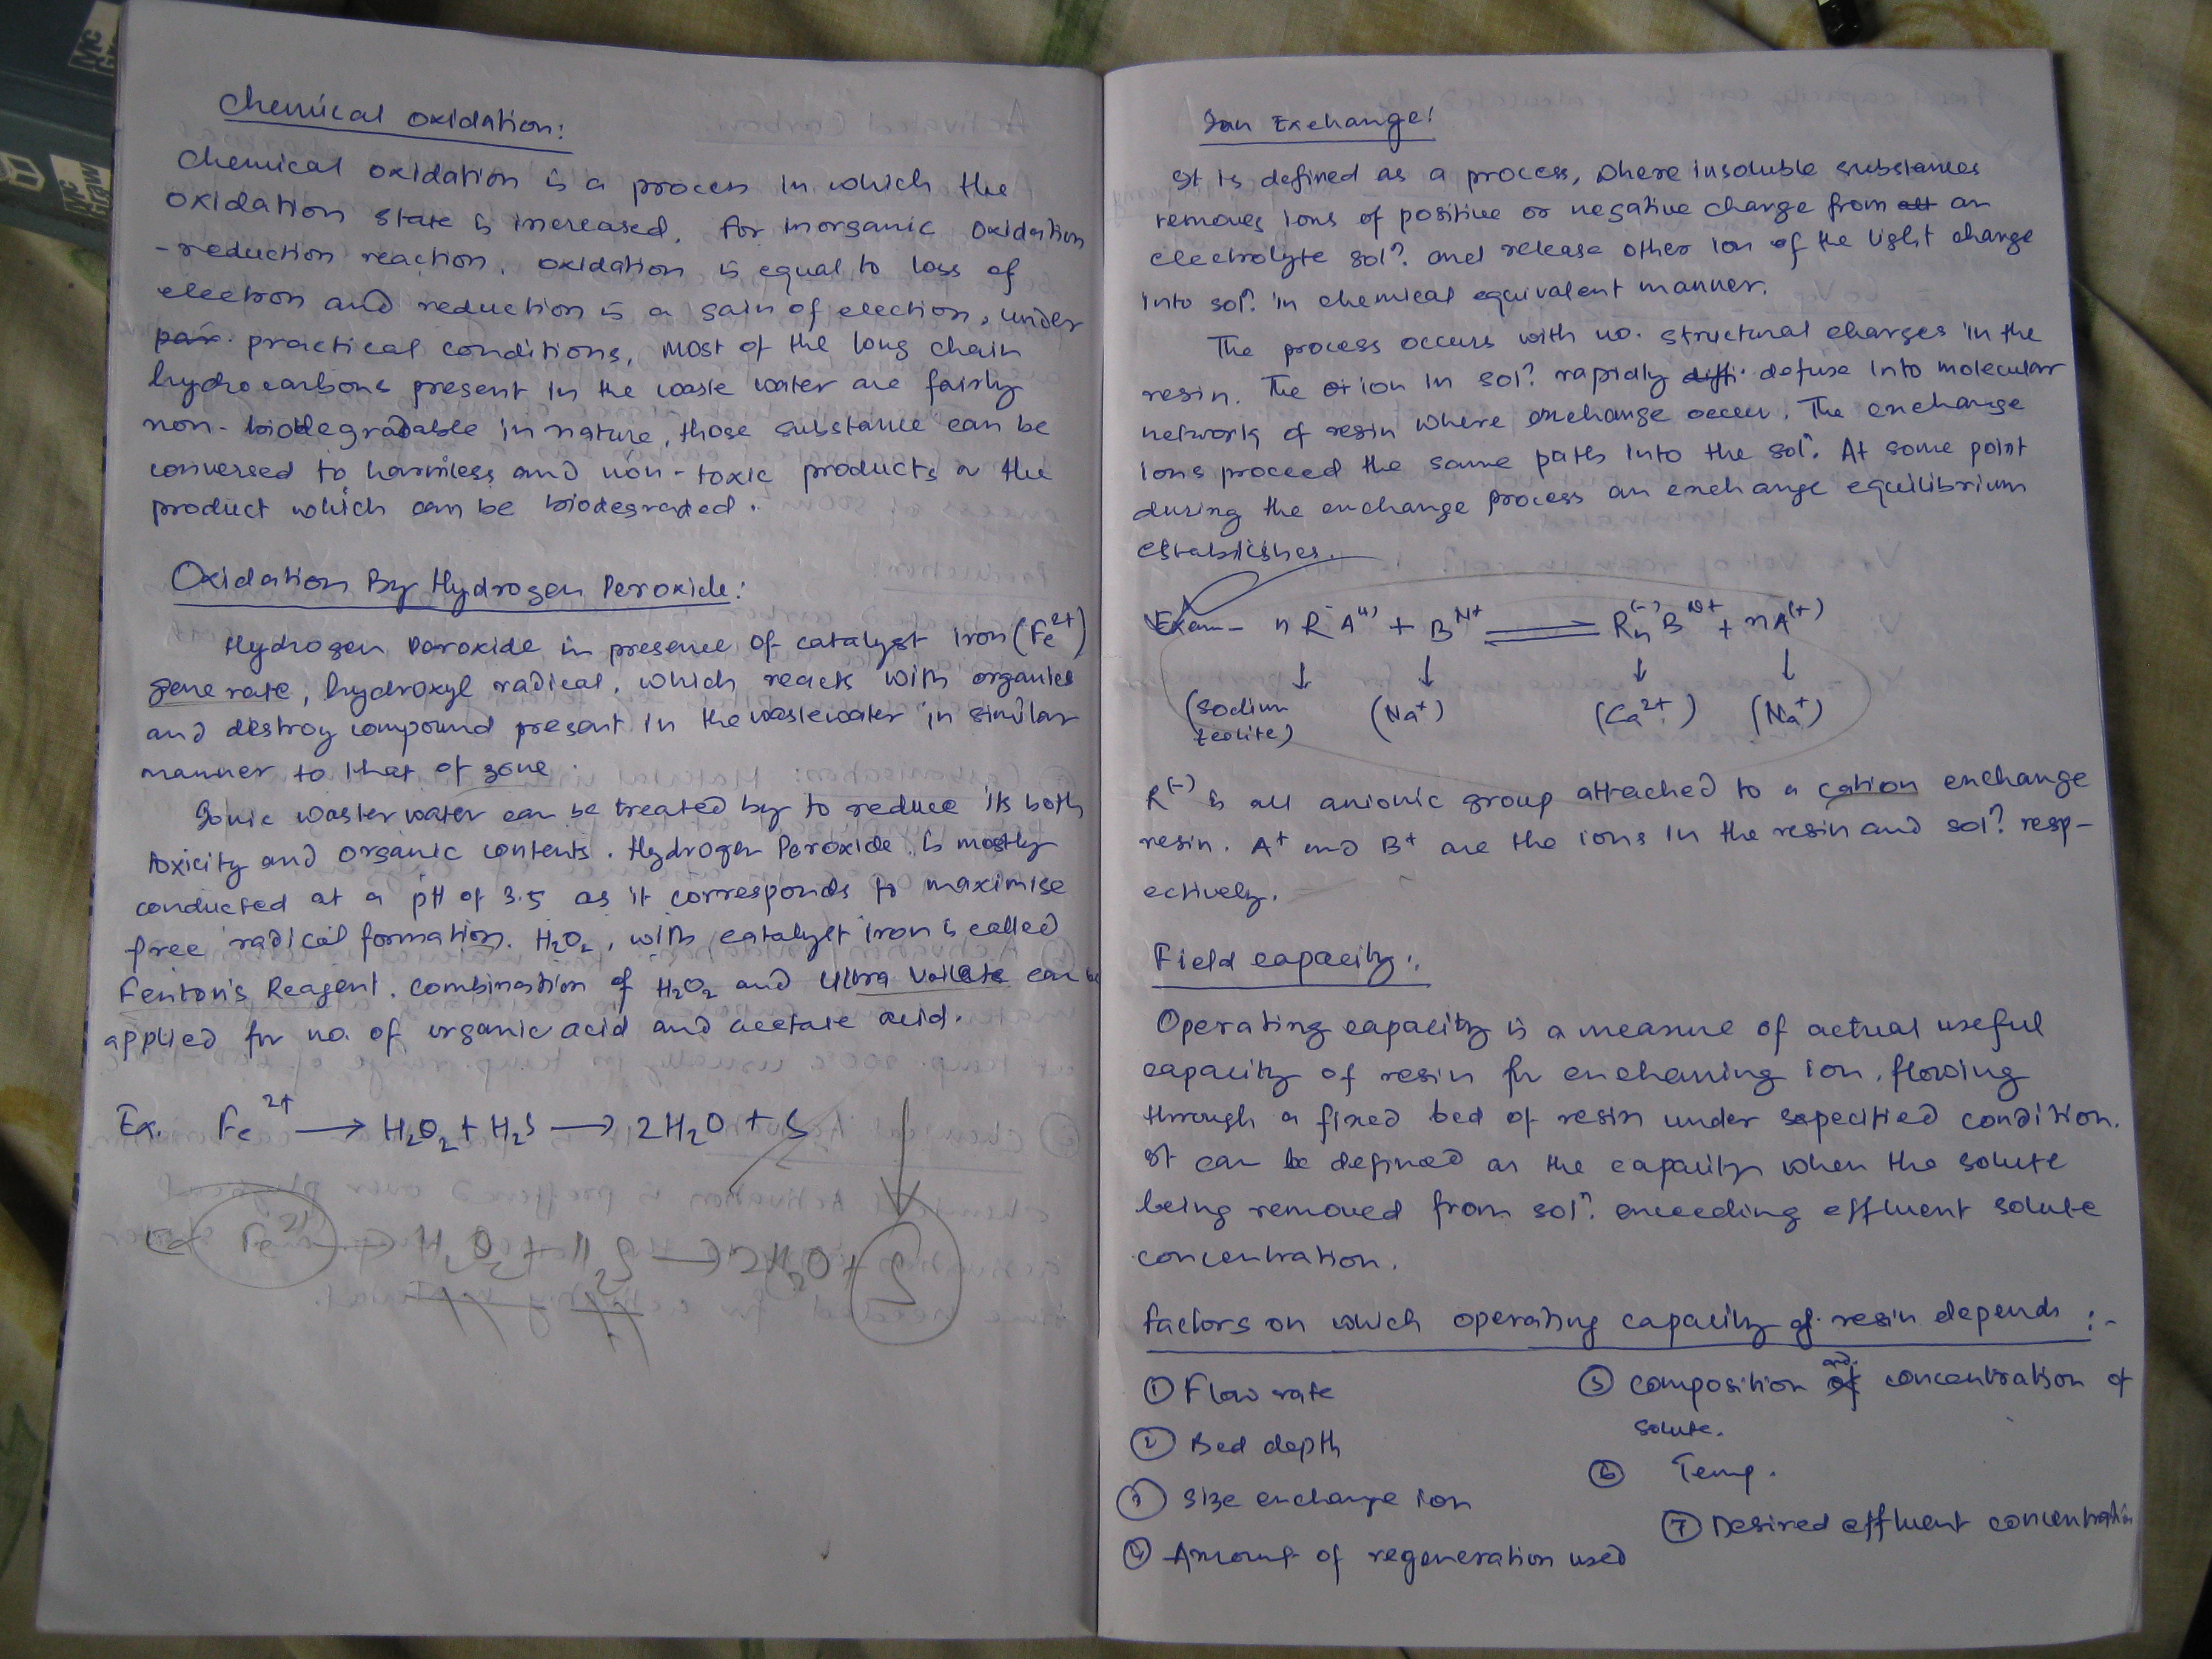 Chemical oxidation:
Chemical oxidation is a process in which the
oxidation state is increased. for inorganic oxidation
-reduction reaction, oxidation is equal to loss of
electron and reduction is a gain of election, under
practical conditions, most of the long chain
hydrocarbons present in the waste water are fairly
non-biodegradable in nature, those substance can be
conversed to harmless and non-toxic products or the
product which can be biodegraded.
Oxidation By Hydrogen Peroxide:
Hydrogen Peroxide in presence of catalyst iron (Fe²⁺)
generate, hydroxyl radical, which reacts with organics
and destroy compound present in the wastewater in similar
manner to that of zone.
waster water can be treated by to reduce its both
toxicity and organic contents. Hydrogen Peroxide is mostly
conducted at a pH of 3.5 as it corresponds to maximise
free radical formation. H₂O₂, with catalyst iron is called
Fenton's Reagent. Combination of H₂O₂ and Ultra can be
applied for no. of organic acid and acetate acid.
Ex. Fe²⁺ → H₂O₂ + H₂S → 2H₂O + S
Fe²⁺ → H₂O₂ + H₂S → 2H₂O + S
Ion Exchange:
It is defined as a process, where insoluble substances
removes ions of positive or negative charge from an
electrolyte solⁿ. and release other ion of the light charge
into solⁿ. in chemical equivalent manner.
The process occurs with no. structural charges in the
resin. The ion in solⁿ. rapidly defuse into molecular
network of resin where exchange occur. The exchange
ions proceed the same path into the solⁿ. At some point
during the exchange process an exchange equilibrium
establishes.
Exam- nR⁻A⁽⁺⁾ + Bᴺ⁺ ⇌ Rₙ⁽⁻⁾Bᴺ⁺ + nA⁽⁺⁾
↓ ↓ ↓ ↓
(Sodium (Na⁺) (Ca²⁺) (Na⁺)
zeolite)
R⁽⁻⁾ is all anionic group attached to a cation exchange
resin. A⁺ and B⁺ are the ions in the resin and solⁿ. resp-
ectively.
Field capacity:
Operating capacity is a measure of actual useful
capacity of resin for enchanning ion, flowing
through a fixed bed of resin under sepecified condition.
It can be defined as the capacity when the solute
being removed from solⁿ. exceeding effluent solute
concentration.
factors on which operating capacity of resin depends :-
① Flow rate
② Bed depth
③ Size exchange ion
④ Amount of regeneration used
⑤ composition and concentration of
solute.
⑥ Temp.
⑦ Desired effluent concentration